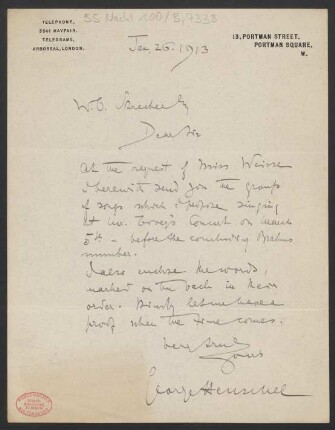 SS Nachl 100/B, 7338
TELEPHONY,
3541 MAYFAIR.
TELEGRAMS,
ARBOREAL, LONDON.
13, PORTMAN STREET,
PORTMAN SQUARE,
W.
Jan. 26. 1913
Dear Sir
At the request of Miss Weisse
I herewith send you the group
of songs which I propose singing
at Mr. Tovey's Concert on March
5th - before the concluding Brahms
number.
I also enclose the words,
marked on the back in their
order. Kindly let me have a
proof when the time comes.
Very truly
Yours
George Henschel